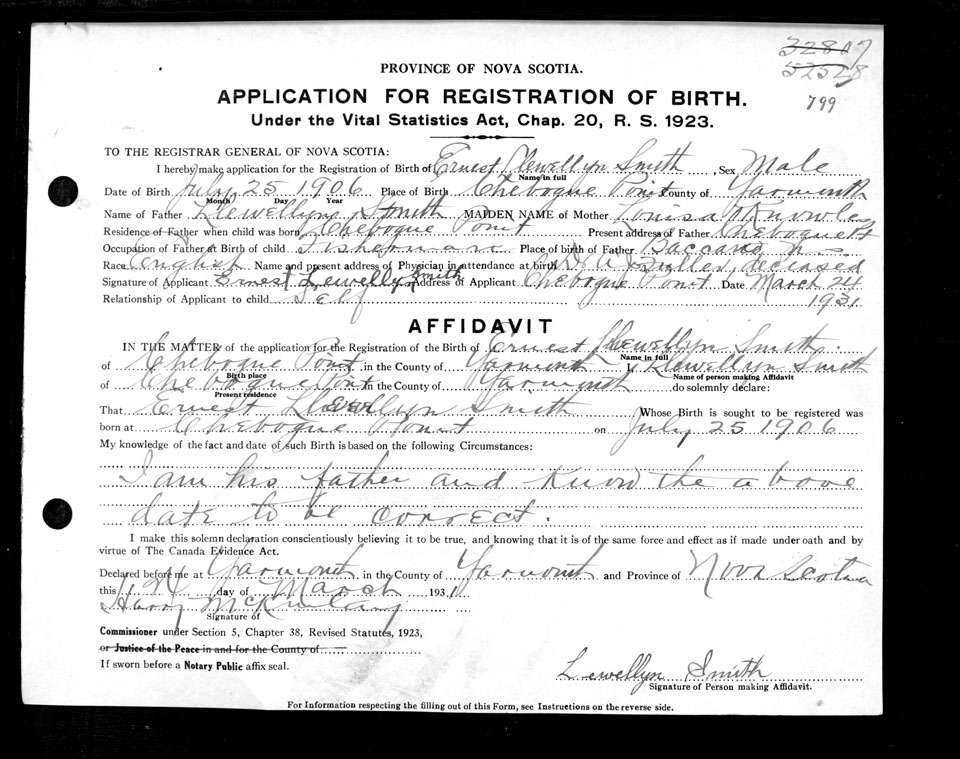 32817
32528
799
PROVINCE OF NOVA SCOTIA.
APPLICATION FOR REGISTRATION OF BIRTH.
Under the Vital Statistics Act, Chap. 20, R. S. 1923.
TO THE REGISTRAR GENERAL OF NOVA SCOTIA:
I hereby make application for the Registration of Birth of Ernest Llewellyn Smith Sex Male
Name in full
Date of Birth July 25 1906 Place of Birth Chebogue Point County of Yarmouth
Month Day Year
Name of Father Llewellyn Smith MAIDEN NAME of Mother Louisa Knowles
Residence of Father when child was born Chebogue Point Present address of Father Chebogue Pt
Occupation of Father at Birth of child Fisherman Place of birth of Father Baccaro N.S.
Race English Name and present address of Physician in attendance at birth A Butler, deceased
Signature of Applicant Ernest Lewellyn Smith Address of Applicant Chebogue Point Date March 24
Relationship of Applicant to child Self 1931
AFFIDAVIT
IN THE MATTER of the application for the Registration of the Birth of Ernest Llewellyn Smith
Name in full
of Chebogue Point in the County of Yarmouth I, Llewellyn Smith
Birth place Name of person making Affidavit
of Chebogue Point in the County of Yarmouth do solemnly declare:
Present residence
That Ernest Llewellyn Smith Whose Birth is sought to be registered was
born at Chebogue Point on July 25 1906
My knowledge of the fact and date of such Birth is based on the following Circumstances:
I am his father and know the above
date to be correct.
I make this solemn declaration conscientiously believing it to be true, and knowing that it is of the same force and effect as if made under oath and by
virtue of The Canada Evidence Act.
Declared before me at Yarmouth in the County of Yarmouth and Province of Nova Scotia
this day of March 1931
Harry
Signature of
Commissioner under Section 5, Chapter 38, Revised Statutes, 1923,
or Justice of the Peace in and for the County of
If sworn before a Notary Public affix seal.
Lewellyn Smith
Signature of Person making Affidavit.
For Information respecting the filling out of this Form, see Instructions on the reverse side.